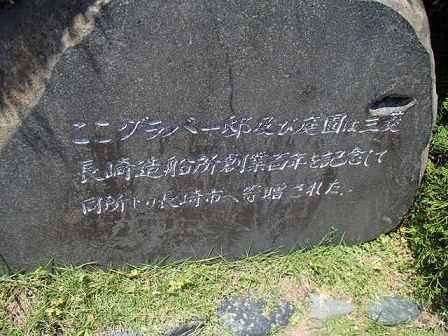 ここグラバー邸及び庭園は三菱
長崎造船所創業百年を記念して
同所より長崎市へ寄贈された